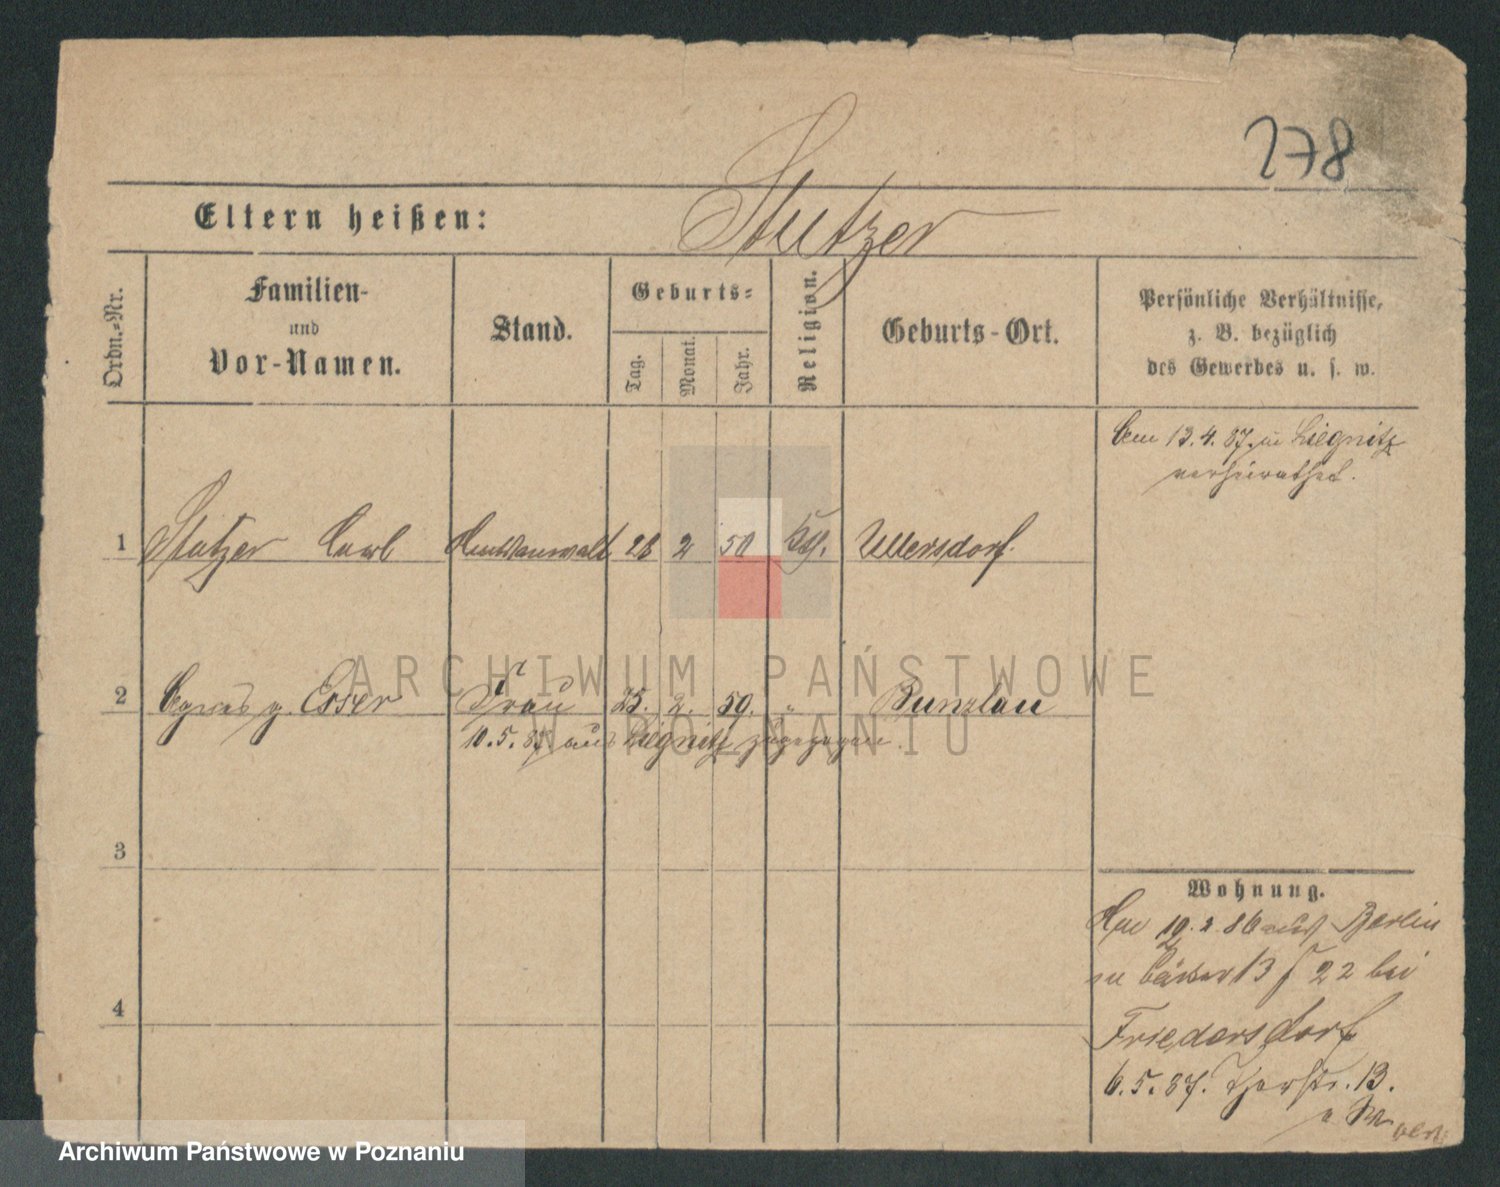 278
Eltern heißen: Stutzer
Ordn.-Nr.
Familien-
und
Vor-Namen.
Stand.
Geburts-
Tag.
Monat.
Jahr.
Religion.
Geburts-Ort.
Persönliche Verhältnisse,
z. B. bezüglich
des Gewerbes u. s. w.
Am 13.4.87 in Liegnitz
verheirathet.
1 Stutzer Carl 28 2 50 Ullersdorf.
2 Agnes g. Esser Frau 25. 2. 59. " Bunzlau
10.5.87 aus Liegnitz zugezogen.
3
4
Wohnung.
19.2.86 aus Berlin
13 22 bei
Friedersdorf
6.5.87. 13.
ARCHIWUM PAŃSTWOWE
W POZNANIU
Archiwum Państwowe w Poznaniu